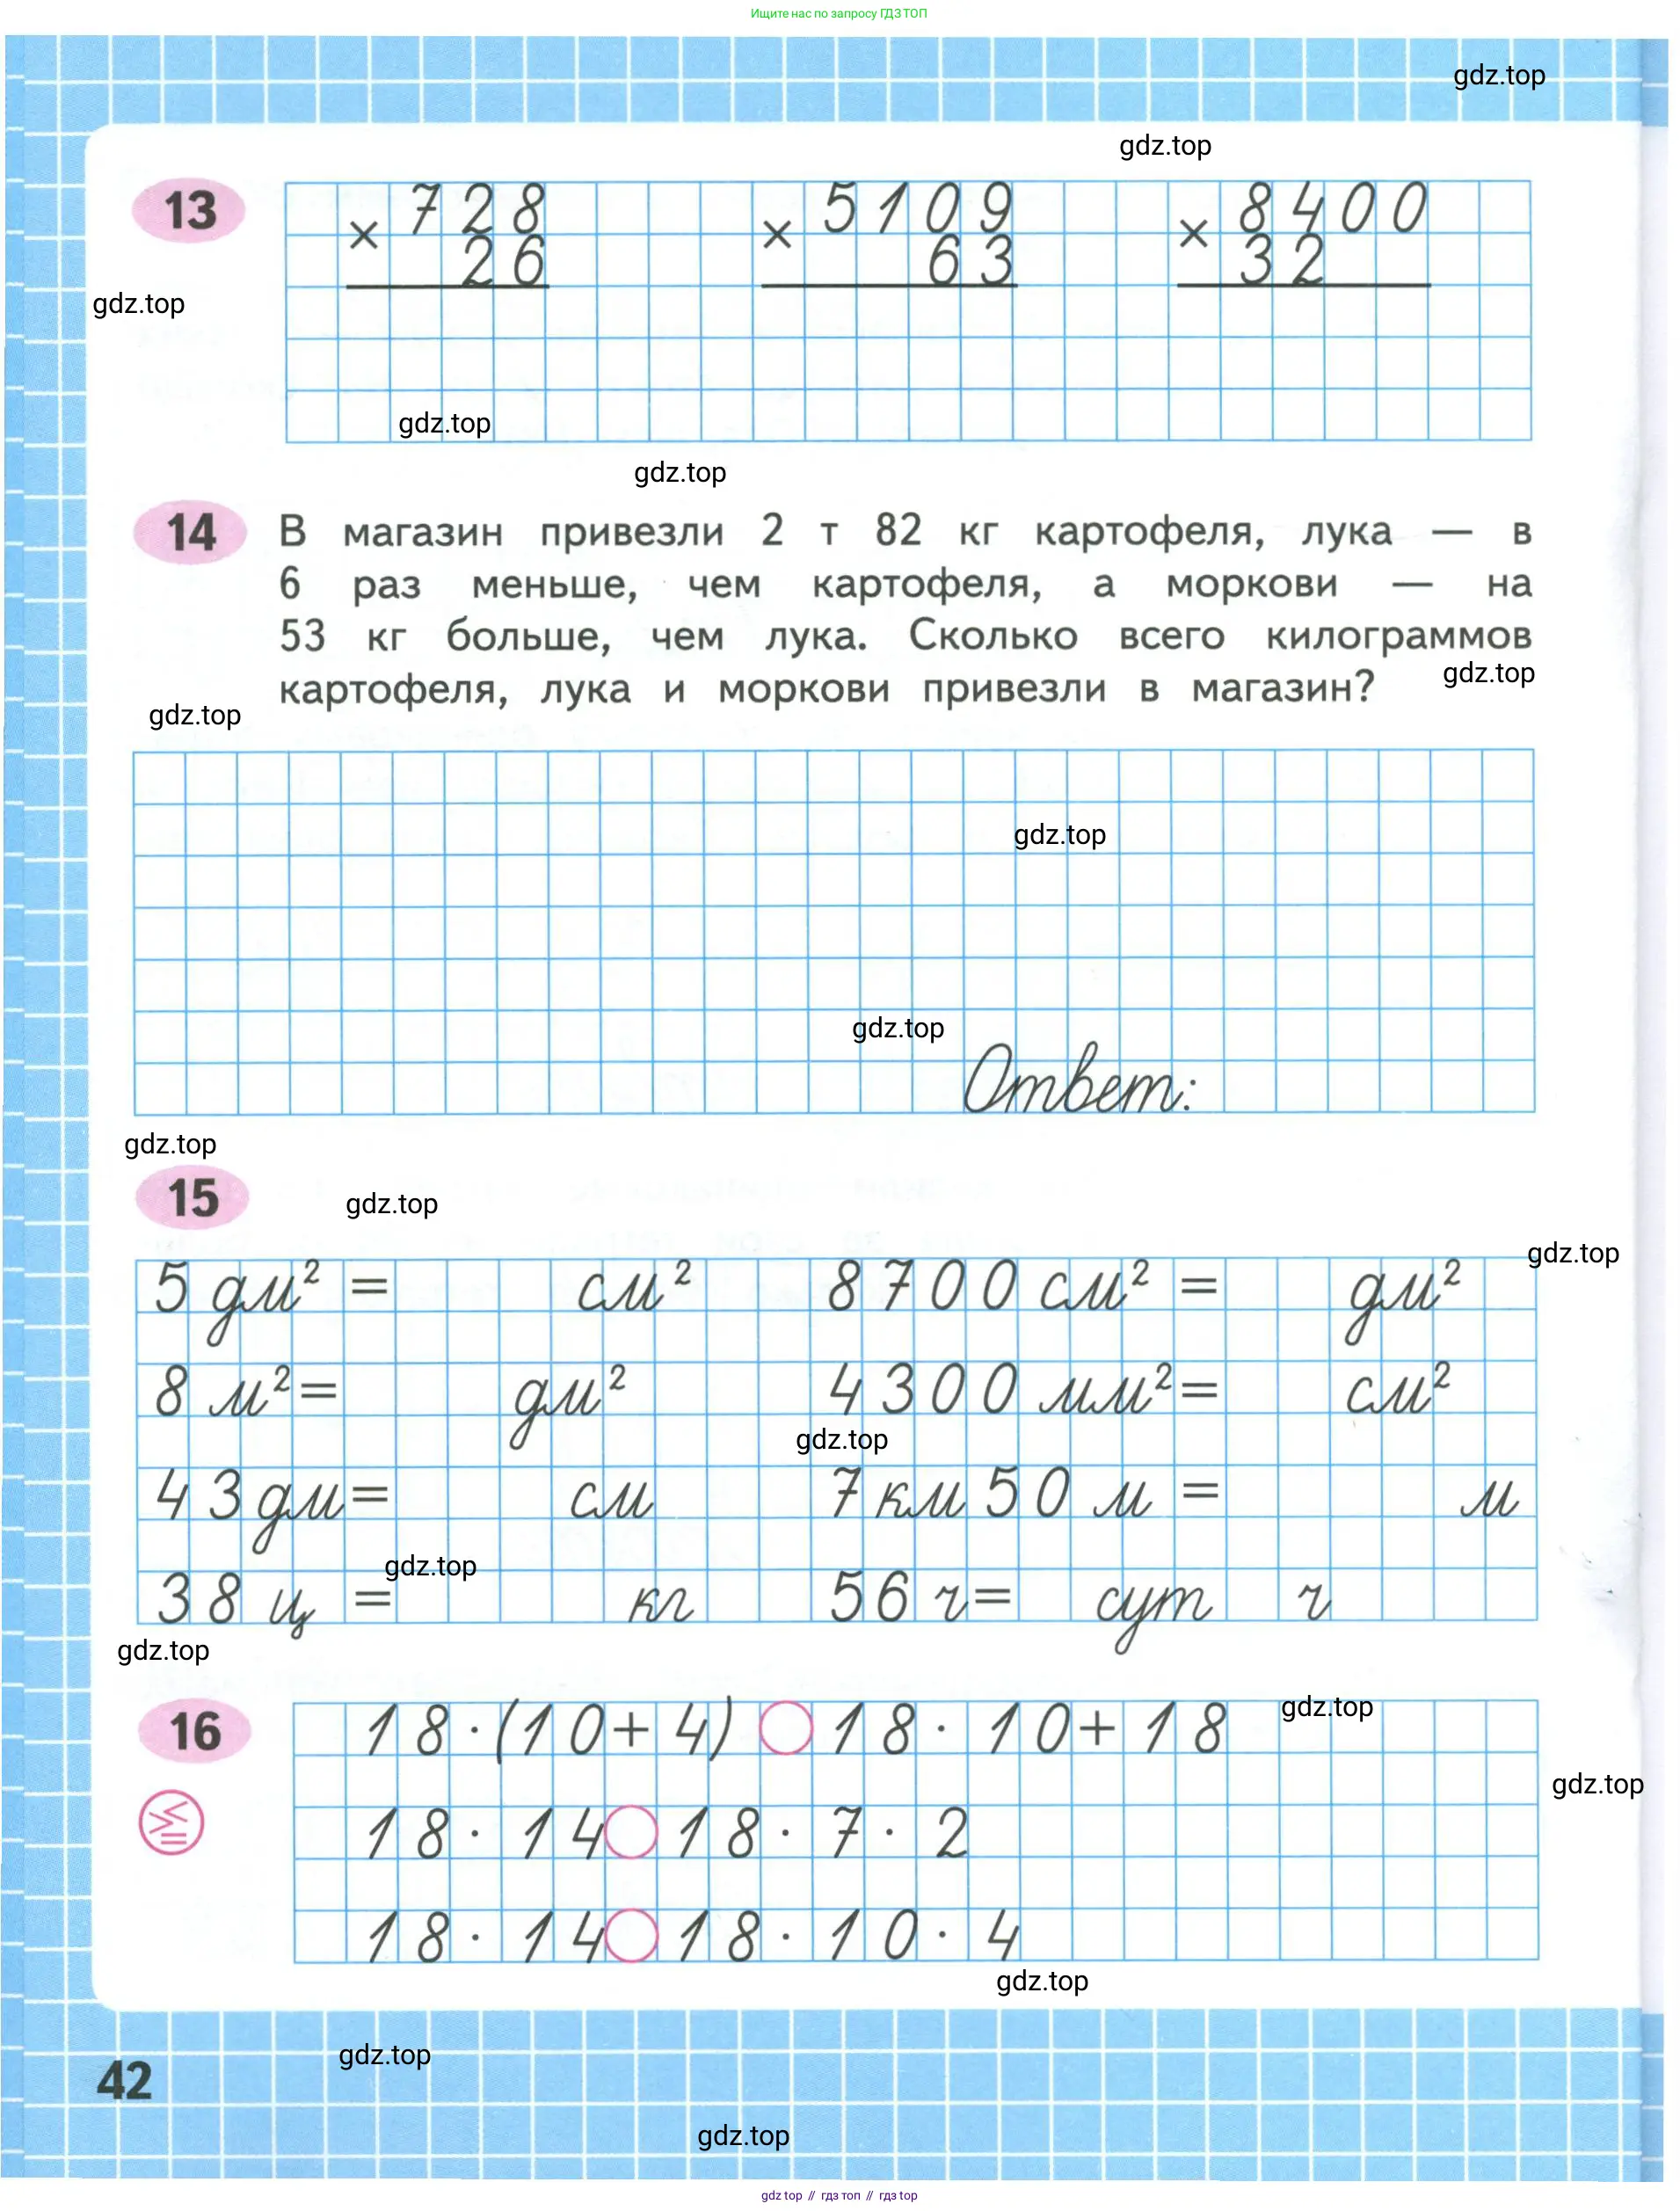 Ищите нас по запросу ГДЗ ТОП
gdz.top
gdz.top
13
× 728
26
× 5109
63
× 8400
32
gdz.top
gdz.top
gdz.top
14 В магазин привезли 2 т 82 кг картофеля, лука — в
6 раз меньше, чем картофеля, а моркови — на
53 кг больше, чем лука. Сколько всего килограммов
картофеля, лука и моркови привезли в магазин?
gdz.top
gdz.top
gdz.top
gdz.top
Ответ:
gdz.top
15
gdz.top
gdz.top
5 дм² = см² 8700 см² = дм²
8 м² = дм² 4300 мм² = см²
gdz.top
43 дм = см 7 км 50 м = м
gdz.top
38 ц = кг 56 ч = сут ч
gdz.top
16 18 · (10 + 4) 18 · 10 + 18
gdz.top
gdz.top
18 · 14 18 · 7 · 2
18 · 14 18 · 10 · 4
gdz.top
gdz.top
42
gdz.top
gdz top // гдз топ // гдз top